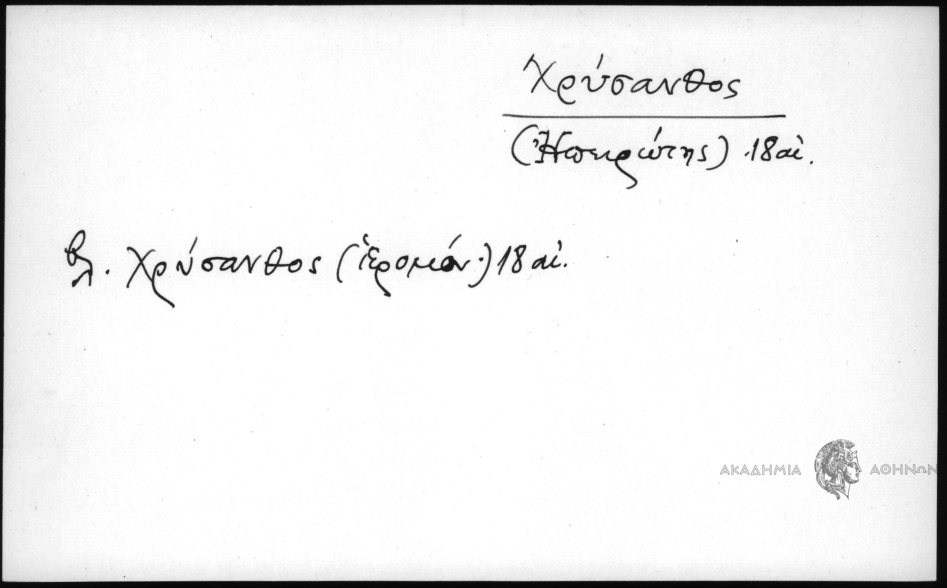 Χρύσανθος
(Ἠπειρώτης) 18 αἰ.
βλ. Χρύσανθος (ἱερομόν.) 18 αἰ.
ΑΚΑΔΗΜΙΑ ΑΘΗΝΩΝ